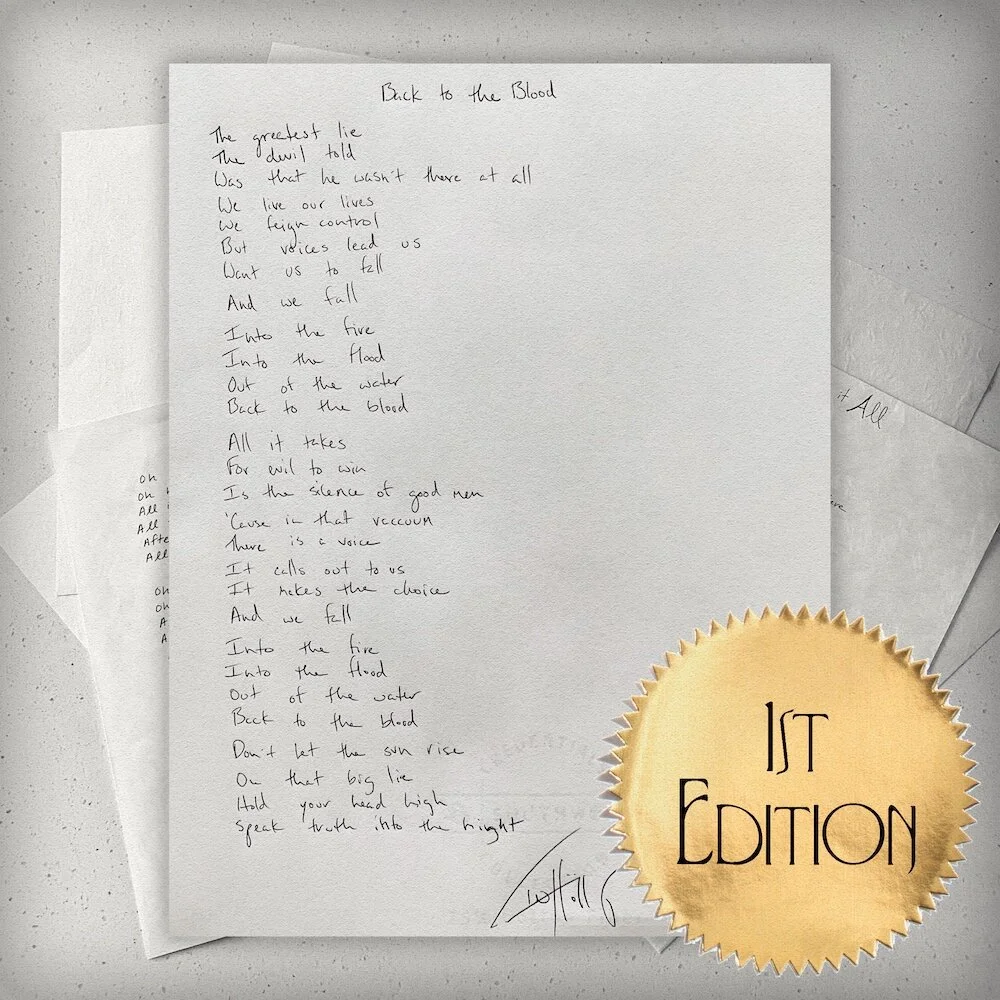 Back to the Blood
The greatest lie
The devil told
Was that he wasn't there at all
We live our lives
We feign control
But voices lead us
Want us to fall
And we fall
Into the fire
Into the flood
Out of the water
Back to the blood
All it takes
For evil to win
Is the silence of good men
'Cause in that vaccuum
There is a voice
It calls out to us
It makes the choice
And we fall
Into the fire
Into the flood
Out of the water
Back to the blood
Don't let the sun rise
On that big lie
Hold your head high
Speak truth into the night
it All
oh
oh
All
All
Afte
All
oh
oh
A
A
1ST
EDITION